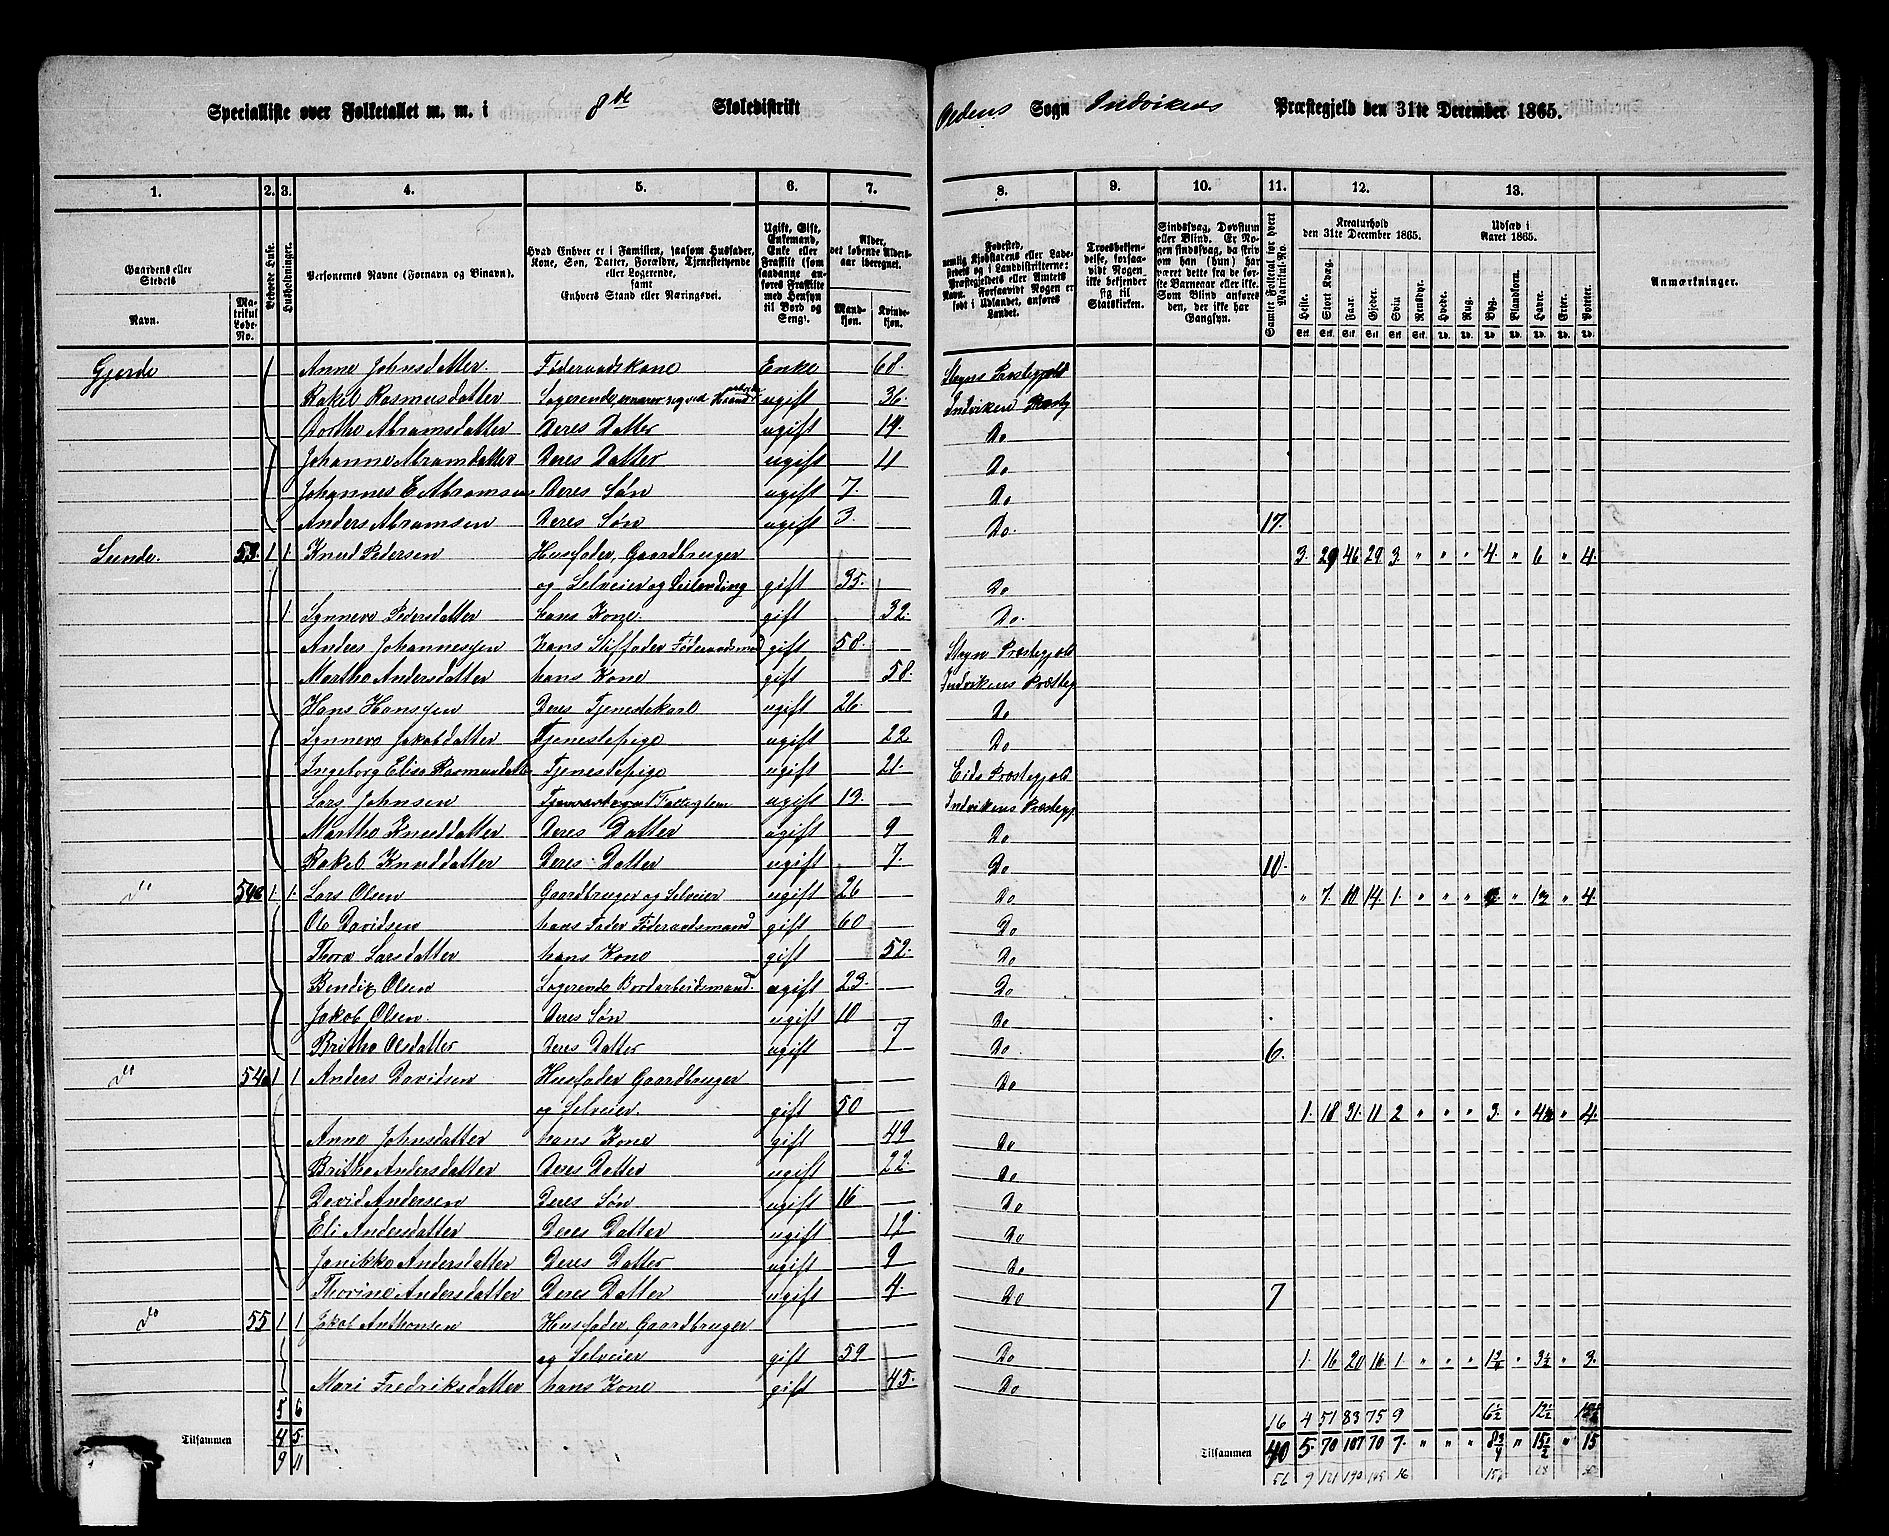 Specialliste over Folketallet m. m. i 8de Skoledistrikt Oldens Sogn Indvikens Præstegjeld den 31te December 1865.
1. 2. 3. 4. 5. 6. 7. 8. 9. 10. 11. 12. 13.
Gaardens eller Stedets Navn.
Matrikul Løbe-No.
Beboede Huse.
Husholdninger.
Personernes Navne (Fornavn og Binavn).
Hvad Enhver er i Familien, saasom Husfader, Kone, Søn, Datter, Forældre, Tjenestetyende eller Logerende, samt Enhvers Stand eller Næringsvei.
Ugift, Gift, Enkemand, Enke eller Fraskilt (som saadanne anføres Fraskilte med Hensyn til Bord og Seng).
Alder, det løbende Aldersaar iberegnet.
Mandkjøn. Kvindekjøn.
Fødested, nemlig Kjøbstadens eller Ladestedets og i Landdistrikterne: Præstegjeldets eller Amtets Navn. Forsaavidt Nogen er født i Udlandet, anføres Landet.
Troesbekjendelse, forsaavidt Nogen ikke bekjender sig til Statskirken.
Sindssvag, Døvstum eller Blind. Er Nogen sindssvag, da skriv om han (hun) har været dette fra de første Barneaar eller ikke. Som Blind anføres den, der ikke har Gangsyn.
Samlet Folketal for hvert Matrikul-No.
Kreaturhold den 31te December 1865.
Heste. Stort Kvæg. Faar. Gjeder. Svin. Rensdyr.
Udsæd i Aaret 1865.
Hvede. Rug. Byg. Blandkorn. Havre. Erter. Poteter.
Anmærkninger.
Gjerde Anne Johnsdatter Føderaadskone Enke 68. Stryns Præstegjeld
Rakel Rasmusdatter ugift 36. Indviken Præstg
Dorthe Abramsdatter Deres Datter ugift 19. Do
Johanne Abramdatter Deres Datter ugift 11 Do
Johannes E Abramsen Deres Søn ugift 7. Do
Anders Abramsen Deres Søn ugift 3. Do 17.
Sunde. 53 1 1. Knud Pedersen Husfader, Gaardbruger 3. 29 46 29 3. " " " 4. " 6 " 4.
og Selveier og Leilending gift 35. Do
1. Synneve Pedersdatter hans Kone. gift 32. Do.
Anders Johannessen hans Stiffader Føderaadsmand gift 58. Stryn Præstegjeld
Marthe Andersdatter hans Kone gift 58. Indvikens Præsteg
Hans Hanssen Deres Tjenestekarl ugift 26. Do
Synneve Jakobdatter Tjenestepige ugift 22 Do
Ingeborg Elise Rasmusdatter Tjenestepige ugift 21. Eids Præstegjeld
Lars Johnsen ugift 13. Indvikens Præstegj.
Marthe Knuddatter Deres Datter ugift 9 Do
Rakel Knuddatter Deres Datter ugift 7. Do 10.
do 54 1. 1. Lars Olsen Gaardbruger og Selveier ugift 26 Do " 7. 10 14. 1. " " " " " 4.
Ole Davidsen hans Fader Føderaadsmand gift 60 Do
Thora Larsdatter hans Kone gift 52. Do
Bendix Olsen Logerende Bordarbeidsmand ugift 23. Do
Jakob Olsen. Deres Søn ugift 10 Do
Brithe Olsdatter Deres Datter ugift 7 Do 6.
do 54 1 1 Anders Davidsen Husfader Gaardbruger Do
og Selveier. gift 50 1. 18 31. 11 2 " " " 3. " " 4.
Anne Johnsdatter hans Kone gift 49 Do
Brithe Andersdatter Deres Datter ugift 22. Do
David Andersen Deres Søn ugift 16 Do
Eli Andersdatter Deres Datter ugift 12 Do
Janikke Andersdatter Deres Datter ugift 9 Do
Thorine Andersdatter Deres Datter ugift 4. Do 7
do 55 1 1 Jakob Anthonsen Husfader Gaardbruger
og Selveier gift 59 Do 1. 16 20 16. 1. " " " " 3½ " 3.
Mari Fredriksdatter hans Kone gift 45. Do
5 6 16 4 51 83 75 9 6½ 12½
Tilsammen 4 5. Tilsammen 40 5. 70 107 70 7. " " " 8¾ " 15½ " 15
9 11 56 9 121 190 145 16